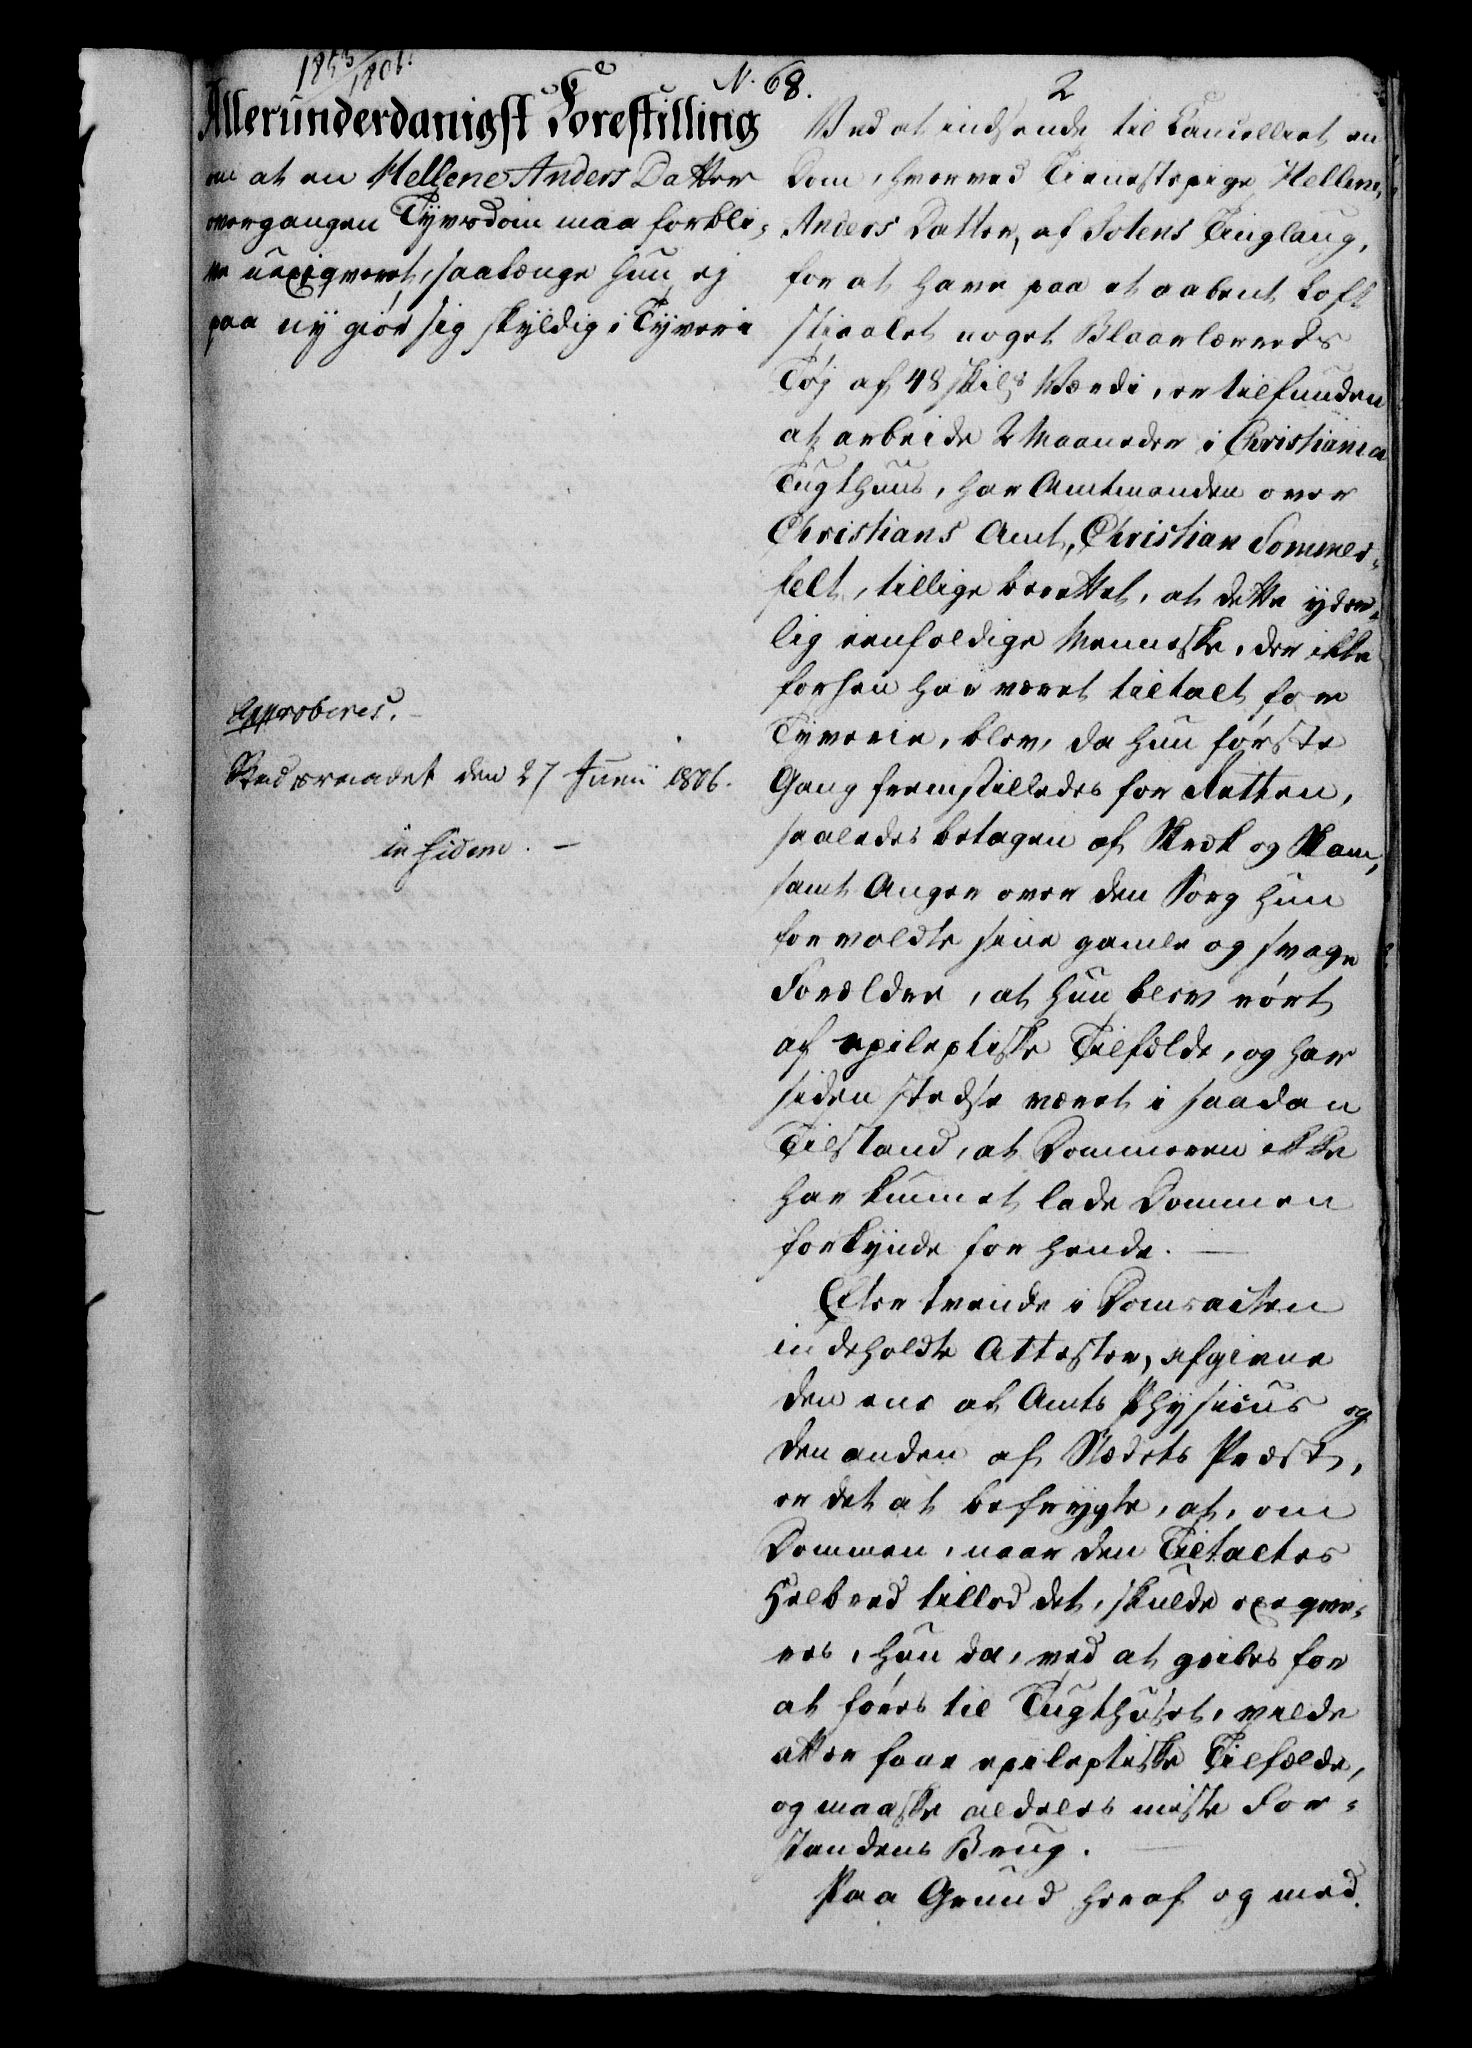 1853/1806.
N. 68.
2
Allerunderdanigst Forestilling
om at en Hellene Anders Datter
overgangen Tyvsdom maa forbli-
ve uexiqveret, saalænge hun ej
paa ny giør sig skyldig i Tyverie
Approberes.
Frederiksberg den 27 Junii 1806.
in fidem. —
Ved at indsende til Cancelliet en
Dom, hvorved Tienestepige Hellene
Anders Datter, af Totens Tinglaug,
for at have paa et aabent Loft
stiaalet noget Blaarlærreds
Tøj af 48 skils Værdi, er tilfunden
at arbeide 2 Maaneder i Christiania
Tugthuus, har Amtmanden over
Christians Amt, Christian Sommer-
felt, tillige berettet, at dette yder-
lig eenfoldige Menneske, der ikke
forhen har været tiltalt for
Tyverie, blev, da hun første
Gang fremstilledes for Retten,
saaledes betagen af Skræk og Skam,
samt Anger over den Sorg hun
forvoldte sine gamle og svage
Forældre, at hun blev rørt
af epileptiske Tilfælde, og har
siden stedse været i saadan
Tilstand, at Dommeren ikke
har kunnet lade Dommen
forkynde for hende. —
Efter tvende i Domsacten
indeholdte Attester, afgivne
den ene af Amts Physicus og
den anden af Stædets Præst,
er det at befrygte, at, om
Dommen, naar den Tiltaltes
Helbred tillod det, skulde exeqve-
res, hun da, ved at gribes for
at føres til Tugthuset, vilde
atter faae epileptiske Tilfælde,
og maaske aldeles miste For-
standens Brug.
Paa Grund heraf og med